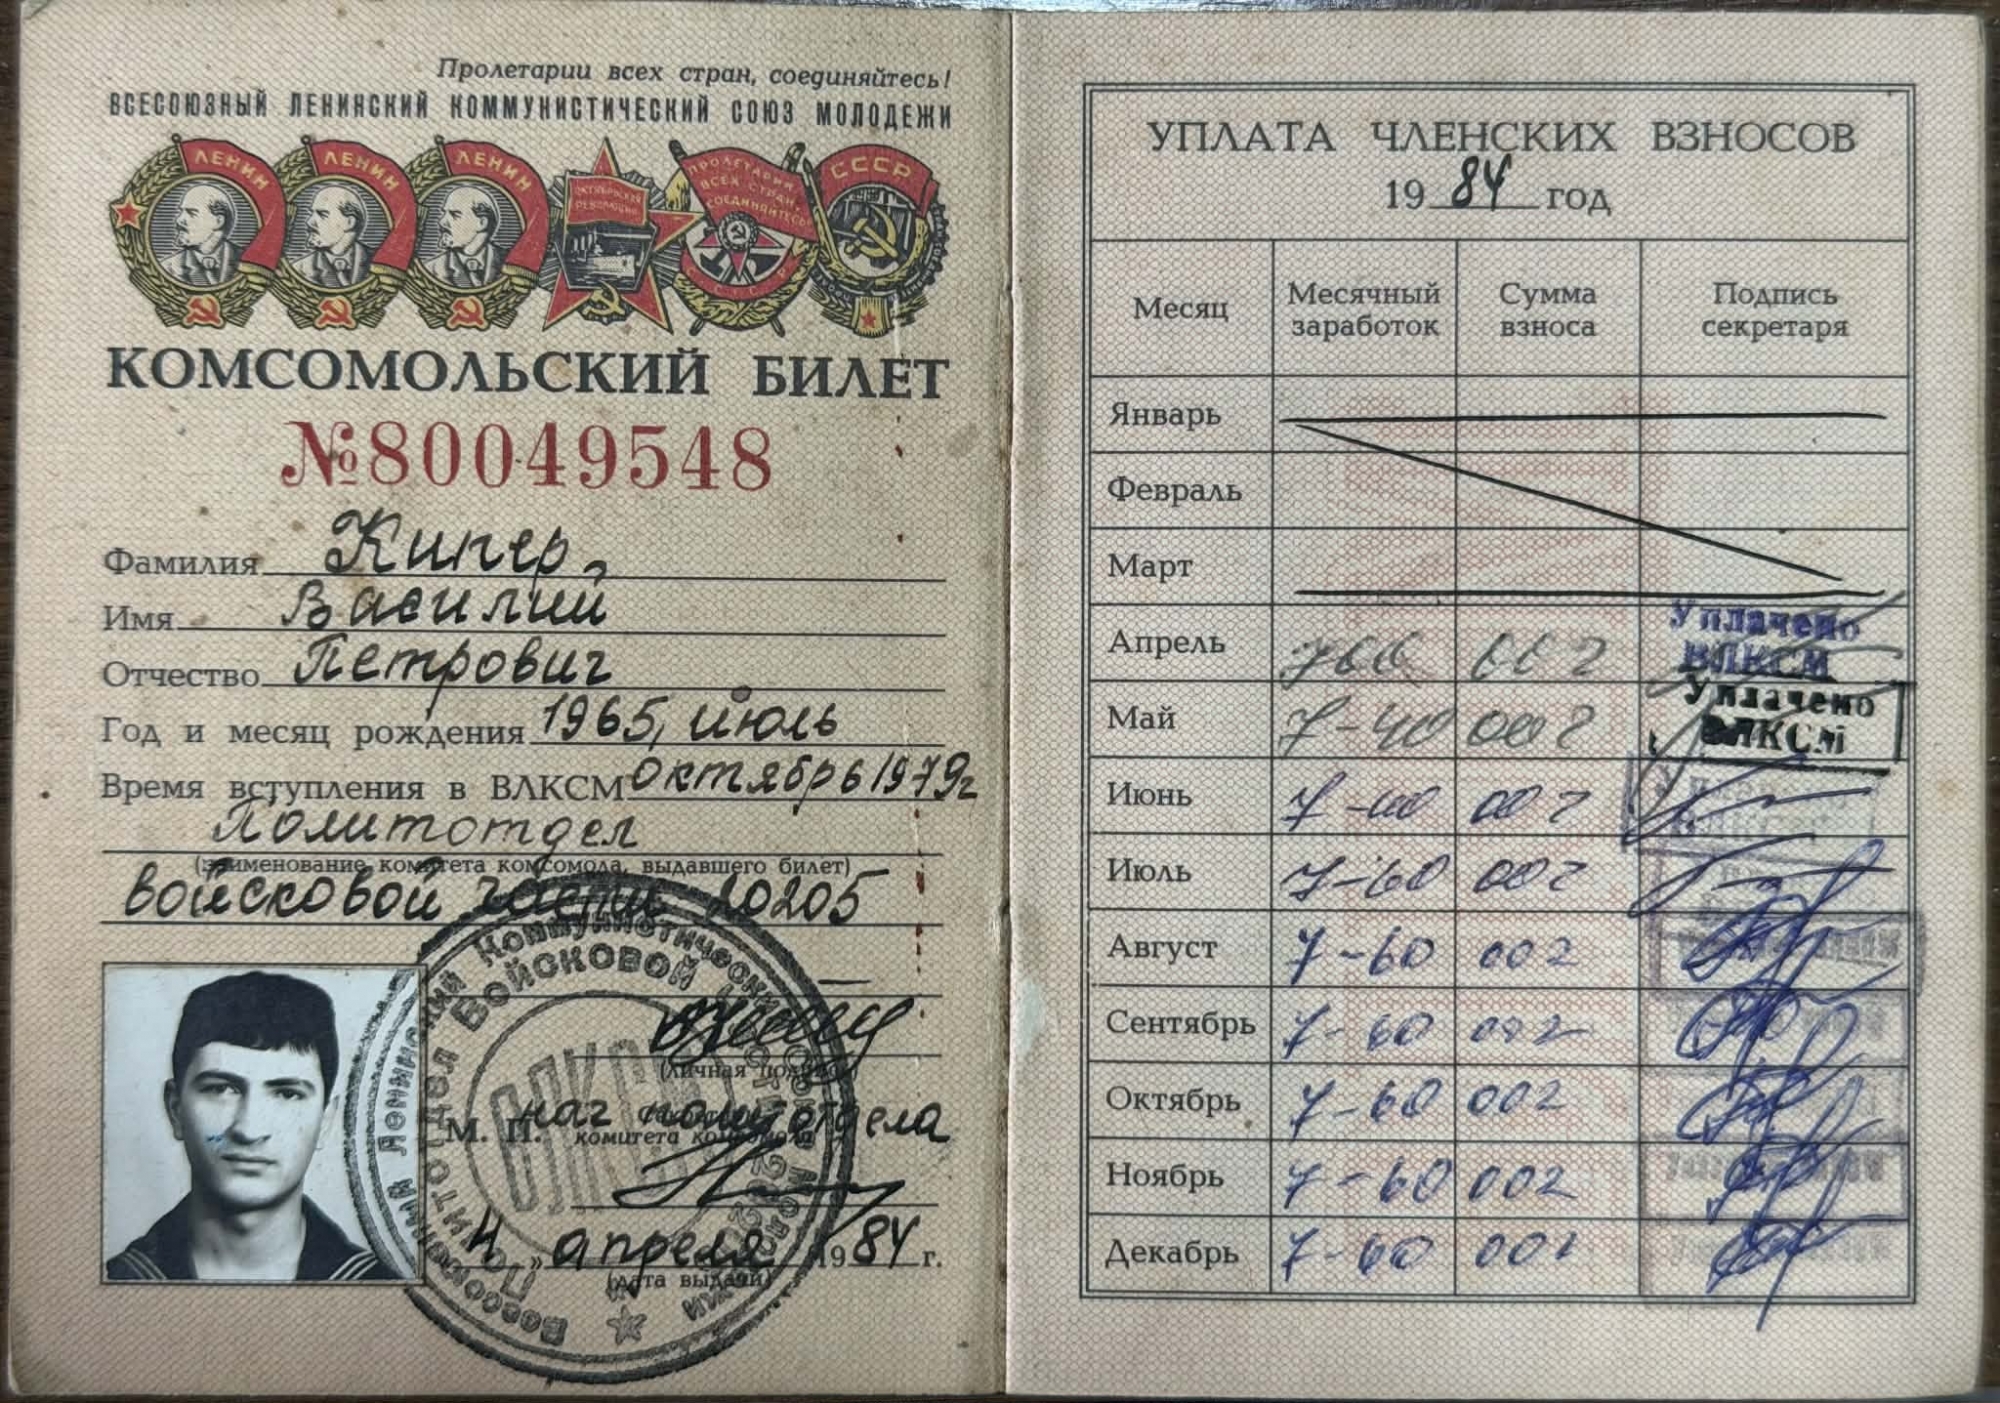 Пролетарии всех стран, соединяйтесь!
ВСЕСОЮЗНЫЙ ЛЕНИНСКИЙ КОММУНИСТИЧЕСКИЙ СОЮЗ МОЛОДЕЖИ
ЛЕНИН ЛЕНИН ЛЕНИН ОКТЯБРЬСКАЯ РЕВОЛЮЦИЯ ПРОЛЕТАРИИ ВСЕХ СТРАН, СОЕДИНЯЙТЕСЬ СССР
КОМСОМОЛЬСКИЙ БИЛЕТ
№80049548
Фамилия Кипер
Имя Василий
Отчество Петрович
Год и месяц рождения 1965, июль
Время вступления в ВЛКСМ октябрь 1979г
Политотдел
(наименование комитета комсомола, выдавшего билет)
войсковой части 20205
(личная подпись)
нач политотдела
М. П. комитета комсомола
4 " апреля 1984 г.
(дата выдачи)
УПЛАТА ЧЛЕНСКИХ ВЗНОСОВ
1984 год
Месяц Месячный заработок Сумма взноса Подпись секретаря
Январь
Февраль
Март
Апрель Уплачено ВЛКСМ
Май 7-40 002 Уплачено ВЛКСМ
Июнь 7-40 002
Июль 7-60 002
Август 7-60 002
Сентябрь 7-60 002
Октябрь 7-60 002
Ноябрь 7-60 002
Декабрь 7-60 002